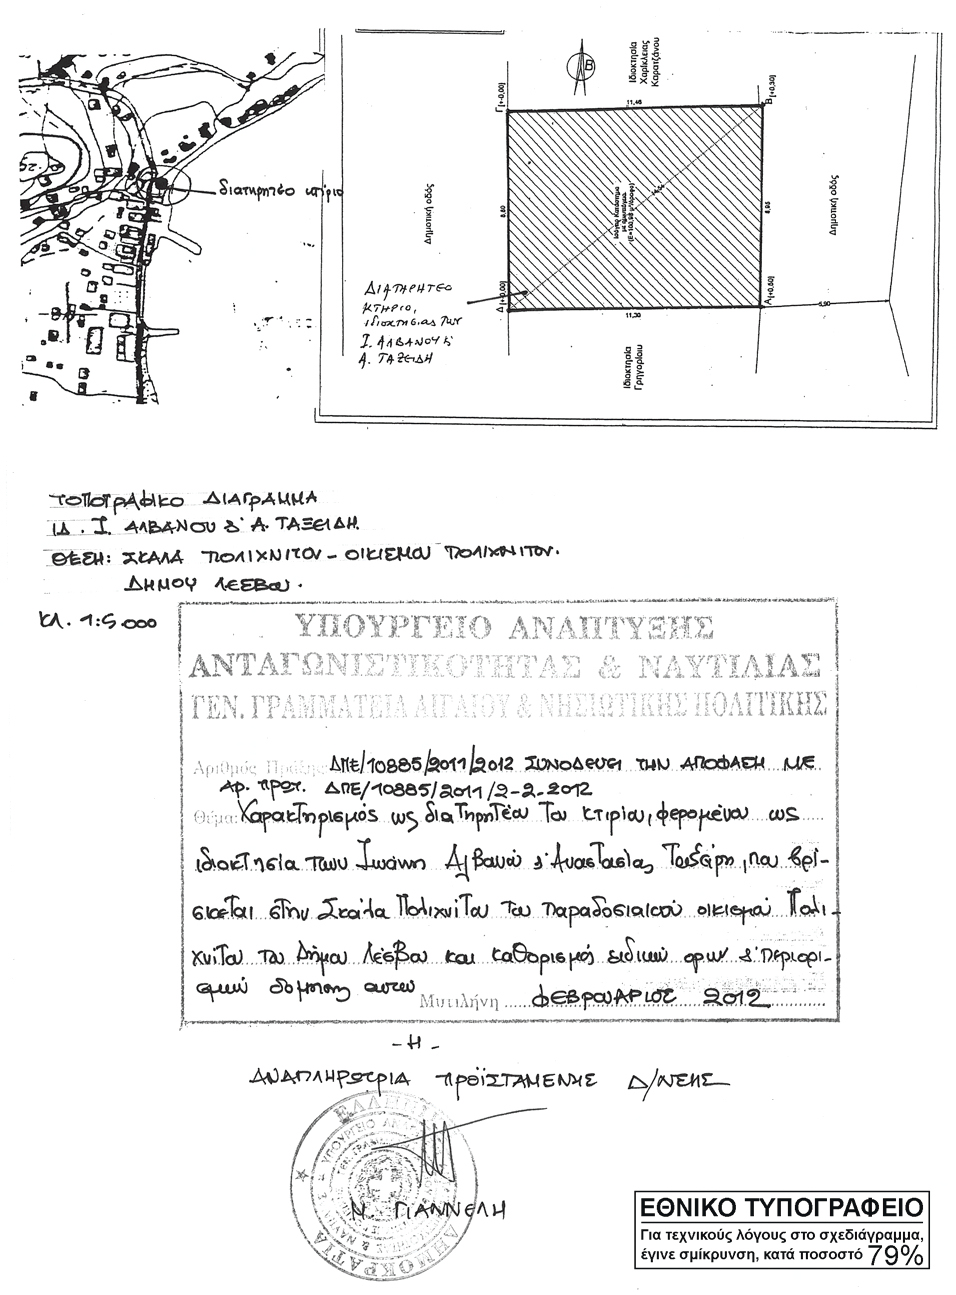 διατηρητέο κτήριο
Β
Ιδιοκτησία
Χαρίκλειας
Καρατζάνου
Γ [+0,00]
11,46
Β [+0,30]
Δημοτική οδός
8,80
8,95
Δημοτική οδός
ΔΙΑΤΗΡΗΤΕΟ
ΚΤΗΡΙΟ,
ΙΔΙΟΚΤΗΣΙΑΣ ΤΩΝ
Ι. ΑΛΒΑΝΟΥ &
Α. ΤΑΞΕΙΔΗ
Δ [+0,00]
11,30
Α [+0,50]
5,90
Ιδιοκτησία
Γρηγορίου
ΤΟΠΟΓΡΑΦΙΚΟ ΔΙΑΓΡΑΜΜΑ
ΙΔ. Ι. ΑΛΒΑΝΟΥ & Α. ΤΑΞΕΙΔΗ.
ΘΕΣΗ: ΣΚΑΛΑ ΠΟΛΙΧΝΙΤΟΥ - ΟΙΚΙΣΜΟΥ ΠΟΛΙΧΝΙΤΟΥ.
ΔΗΜΟΥ ΛΕΣΒΟΥ.
ΚΛ. 1:5.000
ΥΠΟΥΡΓΕΙΟ ΑΝΑΠΤΥΞΗΣ
ΑΝΤΑΓΩΝΙΣΤΙΚΟΤΗΤΑΣ & ΝΑΥΤΙΛΙΑΣ
ΓΕΝ. ΓΡΑΜΜΑΤΕΙΑ ΑΙΓΑΙΟΥ & ΝΗΣΙΩΤΙΚΗΣ ΠΟΛΙΤΙΚΗΣ
Αριθμός Πράξης ΔΠΕ/10885/2011/2012 ΣΥΝΟΔΕΥΕΙ ΤΗΝ ΑΠΟΦΑΣΗ ΜΕ
ΑΡ. ΠΡΩΤ. ΔΠΕ/10885/2011/2-2-2012
Θέμα: Χαρακτηρισμός ως διατηρητέου του κτιρίου, φερομένου ως
ιδιοκτησία των Ιωάννη Αλβανού & Αναστασίας Ταξείδη, που βρί-
σκεται στην Σκάλα Πολιχνίτου του παραδοσιακού οικισμού Πολι-
χνίτου του Δήμου Λέσβου και καθορισμός ειδικών όρων & περιορι-
σμών δόμησης αυτού
Μυτιλήνη ΦΕΒΡΟΥΑΡΙΟΣ 2012
-Η-
ΑΝΑΠΛΗΡΩΤΡΙΑ ΠΡΟΪΣΤΑΜΕΝΗΣ Δ/ΝΣΗΣ
ΕΛΛΗΝΙΚΗ ΔΗΜΟΚΡΑΤΙΑ
Ν. ΓΙΑΝΝΕΛΗ
ΕΘΝΙΚΟ ΤΥΠΟΓΡΑΦΕΙΟ
Για τεχνικούς λόγους στο σχεδιάγραμμα,
έγινε σμίκρυνση, κατά ποσοστό 79%